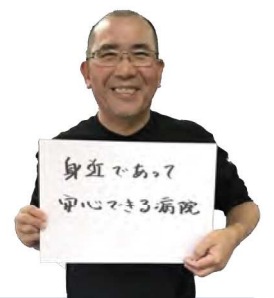 身近であって
安心できる病院